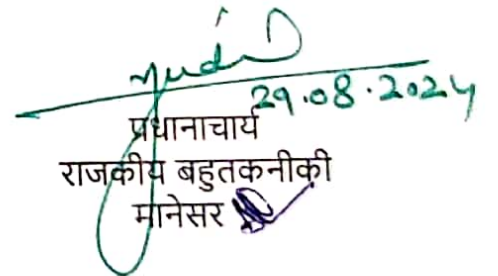 29.08.2024
प्रधानाचार्य
राजकीय बहुतकनीकी
मानेसर